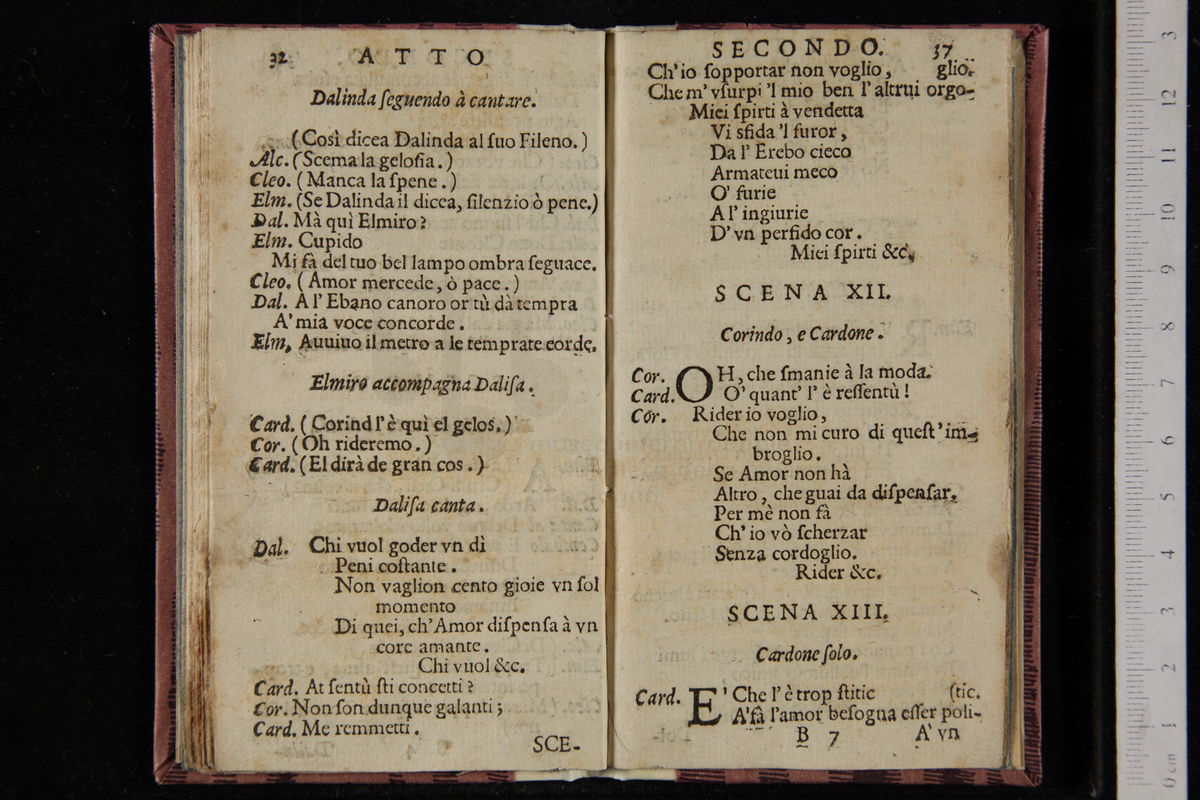 32 ATTO
Dalinda ſeguendo à cantare.
(Così dicea Dalinda al ſuo Fileno.)
Alc. (Scema la geloſia.)
Cleo. (Manca la ſpene.)
Elm. (Se Dalinda il dicea, ſilenzio ò pene.)
Dal. Mà quì Elmiro?
Elm. Cupido
Mi fà del tuo bel lampo ombra ſeguace.
Cleo. (Amor mercede, ò pace.)
Dal. A l' Ebano canoro or tù dà tempra
A' mia voce concorde.
Elm. Auuiuo il metro a le temprate corde.
Elmiro accompagna Daliſa.
Card. (Corind l'è quì el gelos.)
Cor. (Oh rideremo.)
Card. (El dirà de gran cos.)
Daliſa canta.
Dal. Chi vuol goder vn dì
Peni coſtante.
Non vaglion cento gioie vn ſol
momento
Di quei, ch'Amor diſpenſa à vn
core amante.
Chi vuol &c.
Card. At ſentù ſti concetti?
Cor. Non ſon dunque galanti;
Card. Me remmetti.
SCE-
SECONDO. 37
Ch' io ſopportar non voglio, glio.
Che m' vſurpi 'l mio ben l' altrui orgo-
Miei ſpirti à vendetta
Vi sfida 'l furor,
Da l' Erebo cieco
Armateui meco
O' furie
A l' ingiurie
D' vn perfido cor.
Miei ſpirti &c.
SCENA XII.
Corindo, e Cardone.
Cor. OH, che ſmanie à la moda.
Card. O' quant' l' è reſſentù!
Cor. Rider io voglio,
Che non mi curo di queſt' im-
broglio.
Se Amor non hà
Altro, che guai da diſpenſar,
Per mè non fà
Ch' io vò ſcherzar
Senza cordoglio.
Rider &c.
SCENA XIII.
Cardone ſolo.
Card. E' Che l' è trop ſtitic (tic.
A' fà l'amor beſogna eſſer poli-
B 7 A' vn